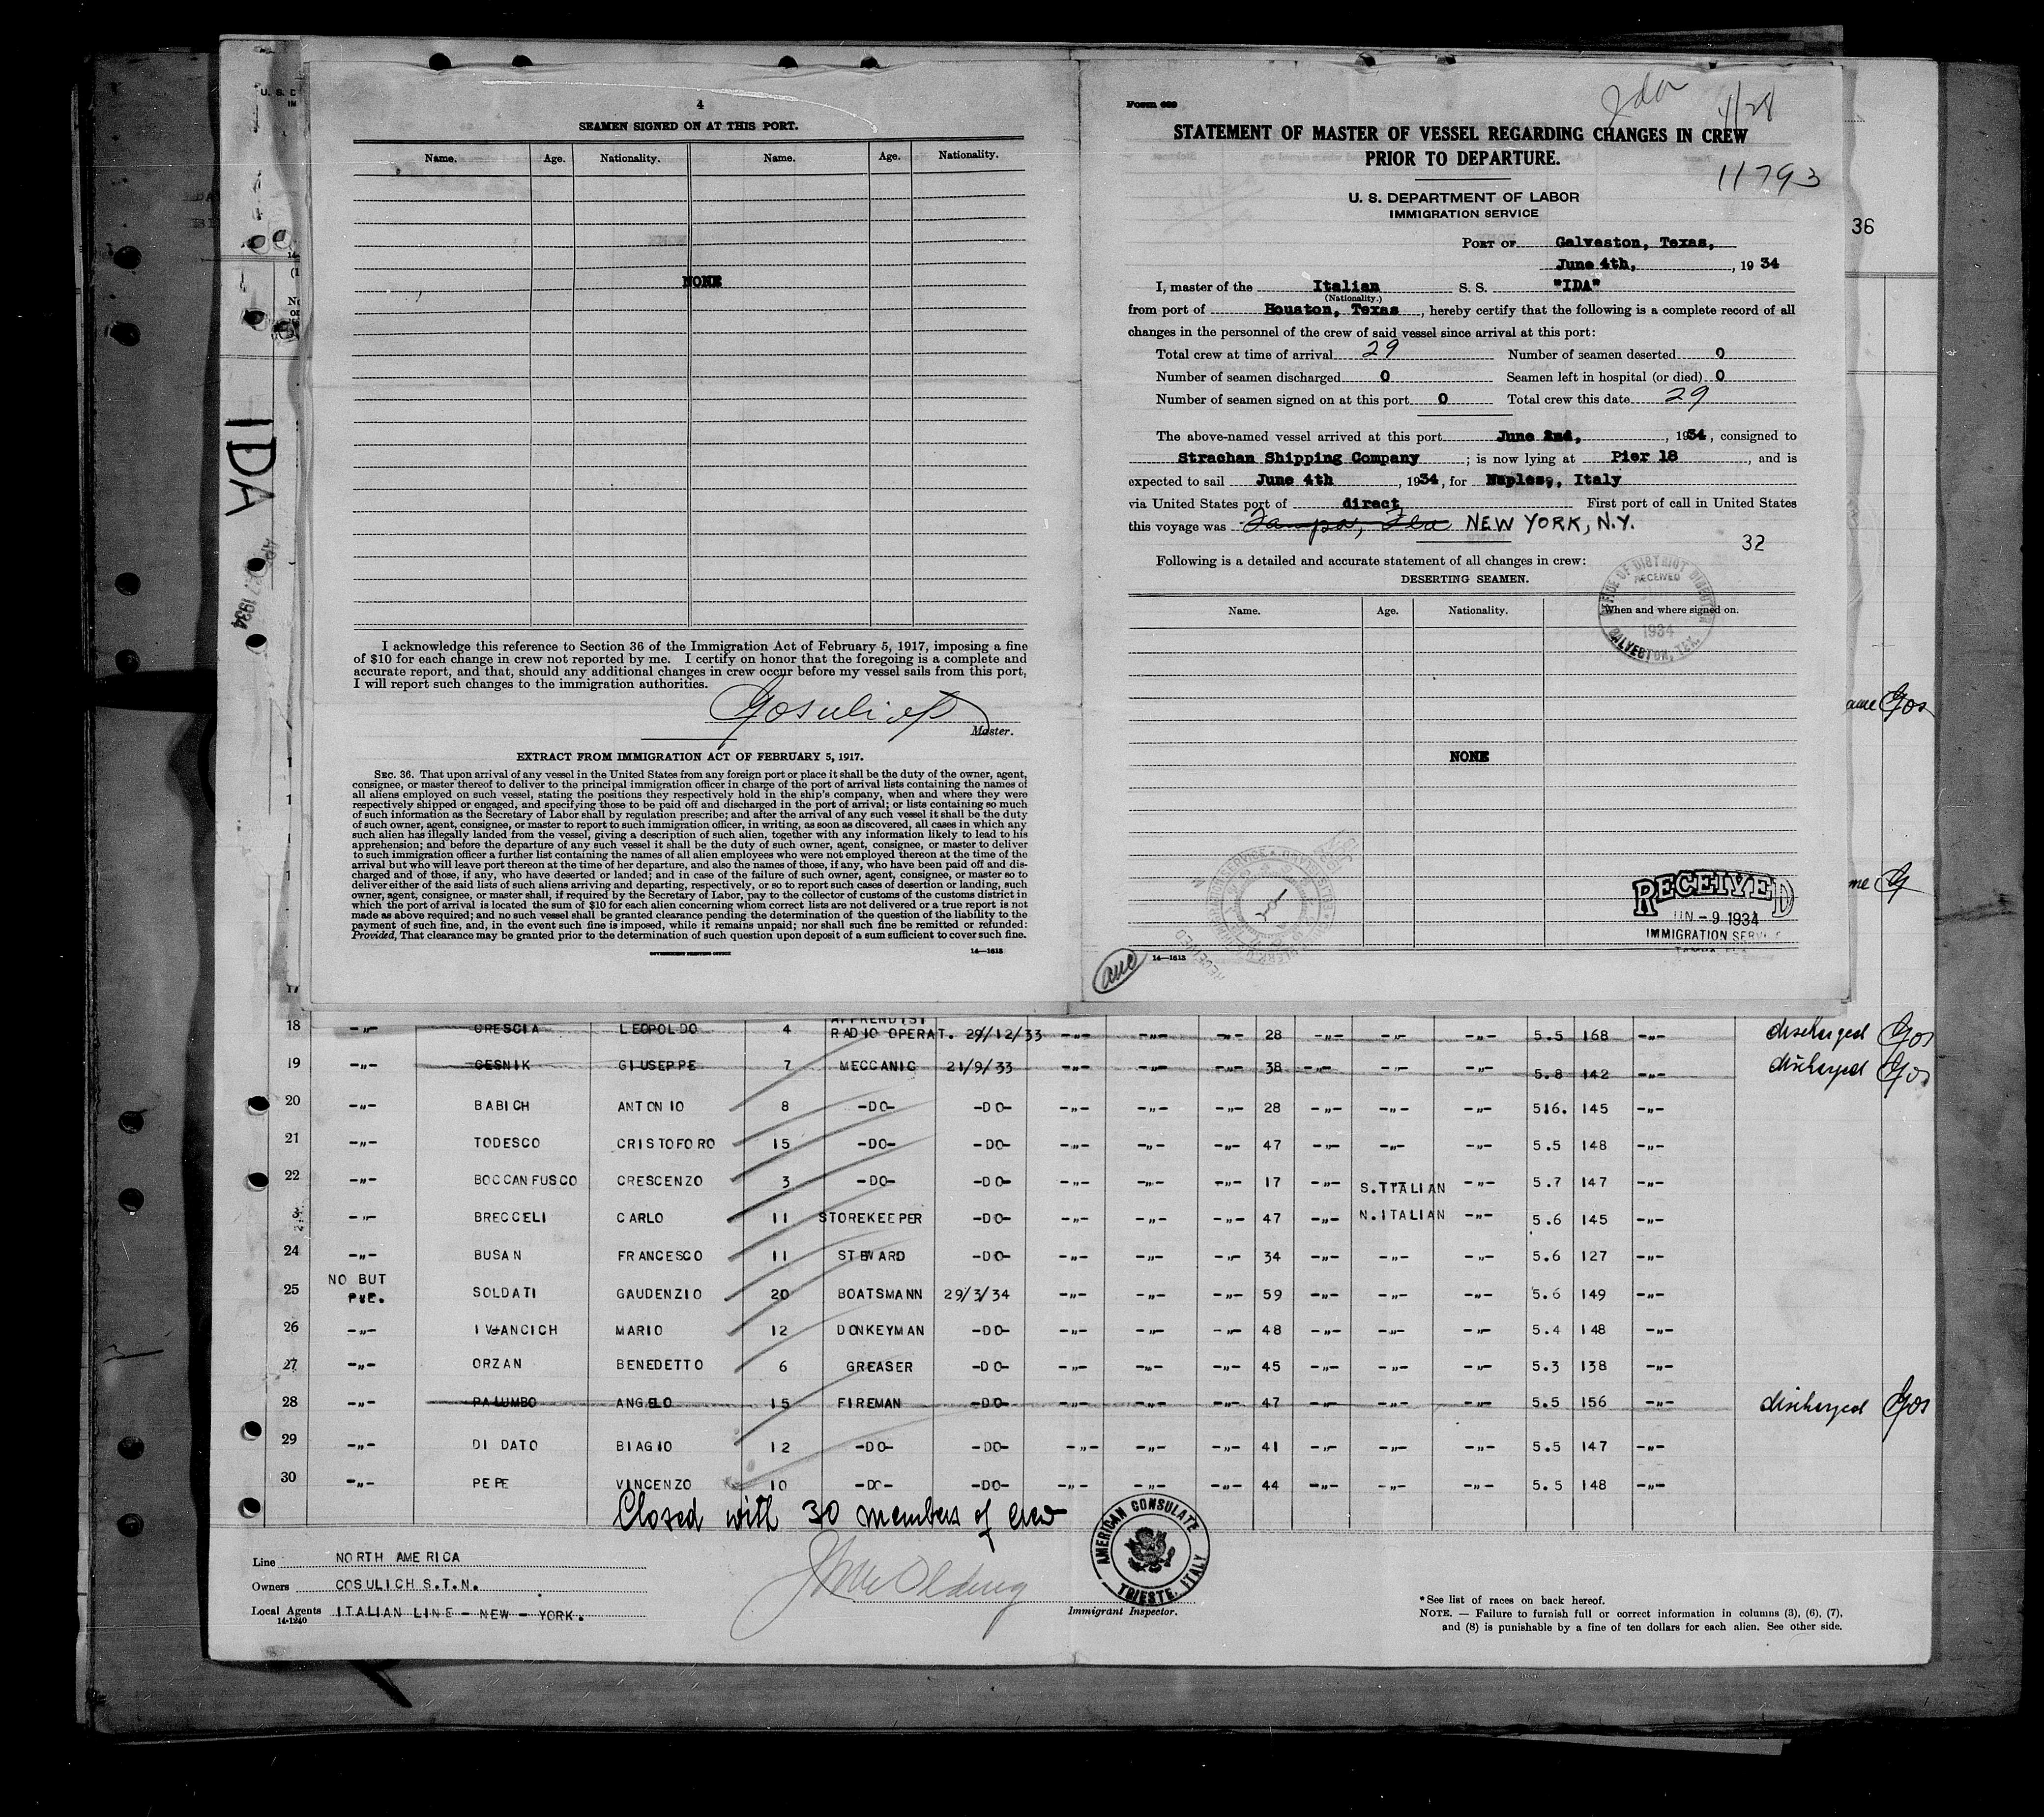 4
SEAMEN SIGNED ON AT THIS PORT.
Name. Age. Nationality. Name. Age. Nationality.
NONE
I acknowledge this reference to Section 36 of the Immigration Act of February 5, 1917, imposing a fine
of $10 for each change in crew not reported by me. I certify on honor that the foregoing is a complete and
accurate report, and that, should any additional changes in crew occur before my vessel sails from this port,
I will report such changes to the immigration authorities.
Master.
EXTRACT FROM IMMIGRATION ACT OF FEBRUARY 5, 1917.
SEC. 36. That upon arrival of any vessel in the United States from any foreign port or place it shall be the duty of the owner, agent,
consignee, or master thereof to deliver to the principal immigration officer in charge of the port of arrival lists containing the names of
all aliens employed on such vessel, stating the positions they respectively hold in the ship's company, when and where they were
respectively shipped or engaged, and specifying those to be paid off and discharged in the port of arrival; or lists containing so much
of such information as the Secretary of Labor shall by regulation prescribe; and after the arrival of any such vessel it shall be the duty
of such owner, agent, consignee, or master to report to such immigration officer, in writing, as soon as discovered, all cases in which any
such alien has illegally landed from the vessel, giving a description of such alien, together with any information likely to lead to his
apprehension; and before the departure of any such vessel it shall be the duty of such owner, agent, consignee, or master to deliver
to such immigration officer a further list containing the names of all alien employees who were not employed thereon at the time of the
arrival but who will leave port thereon at the time of her departure, and also the names of those, if any, who have been paid off and dis-
charged and of those, if any, who have deserted or landed; and in case of the failure of such owner, agent, consignee, or master so to
deliver either of the said lists of such aliens arriving and departing, respectively, or so to report such cases of desertion or landing, such
owner, agent, consignee, or master shall, if required by the Secretary of Labor, pay to the collector of customs of the customs district in
which the port of arrival is located the sum of $10 for each alien concerning whom correct lists are not delivered or a true report is not
made as above required; and no such vessel shall be granted clearance pending the determination of the question of the liability to the
payment of such fine, and, in the event such fine is imposed, while it remains unpaid; nor shall such fine be remitted or refunded:
Provided, That clearance may be granted prior to the determination of such question upon deposit of a sum sufficient to cover such fine.
GOVERNMENT PRINTING OFFICE 14—1613
IDA
1934
Ida 4/28
Form 689
STATEMENT OF MASTER OF VESSEL REGARDING CHANGES IN CREW
PRIOR TO DEPARTURE.
11793
U. S. DEPARTMENT OF LABOR
IMMIGRATION SERVICE
36
PORT OF Galveston, Texas,
June 4th, , 19 34
I, master of the Italian S. S. "IDA"
(Nationality.)
from port of Houston, Texas , hereby certify that the following is a complete record of all
changes in the personnel of the crew of said vessel since arrival at this port:
Total crew at time of arrival 29 Number of seamen deserted 0
Number of seamen discharged 0 Seamen left in hospital (or died) 0
Number of seamen signed on at this port 0 Total crew this date 29
The above-named vessel arrived at this port June 2nd, , 1934, consigned to
Strachan Shipping Company ; is now lying at Pier 18 , and is
expected to sail June 4th , 1934, for Naples, Italy
via United States port of direct First port of call in United States
this voyage was Tampa, Fla NEW YORK, N.Y.
32
Following is a detailed and accurate statement of all changes in crew:
DESERTING SEAMEN.
OFFICE OF DISTRICT DIRECTOR
RECEIVED
1934
GALVESTON, TEX.
Name. Age. Nationality. When and where signed on.
NONE
RECEIVED
JUN - 9 1934
IMMIGRATION SERVICE
14—1613
18 -"- CRESCIA LEOPOLDO 4 APPRENDIST RADIO OPERAT. 29/12/33 -"- -"- -"- 28 -"- -"- -"- 5.5 168 -"- discharged Gos
19 -"- CESNIK GIUSEPPE 7 MECCANIC 21/9/33 -"- -"- -"- 38 -"- -"- -"- 5.8 142 -"- discharged Gos
20 -"- BABICH ANTONIO 8 -DO- -DO- -"- -"- -"- 28 -"- -"- -"- 516. 145 -"-
21 -"- TODESCO CRISTOFORO 15 -DO- -DO- -"- -"- -"- 47 -"- -"- -"- 5.5 148 -"-
22 -"- BOCCANFUSCO CRESCENZO 3 -DO- -DO- -"- -"- -"- 17 -"- S.ITALIAN -"- 5.7 147 -"-
3 -"- BRECCELI CARLO 11 STOREKEEPER -DO- -"- -"- -"- 47 -"- N.ITALIAN -"- 5.6 145 -"-
24 -"- BUSAN FRANCESCO 11 STEWARD -DO- -"- -"- -"- 34 -"- -"- -"- 5.6 127 -"-
25 NO BUT PvE. SOLDATI GAUDENZIO 20 BOATSMANN 29/3/34 -"- -"- -"- 59 -"- -"- -"- 5.6 149 -"-
26 -"- IVANCICH MARIO 12 DONKEYMAN -DO- -"- -"- -"- 48 -"- -"- -"- 5.4 148 -"-
27 -"- ORZAN BENEDETTO 6 GREASER -DO- -"- -"- -"- 45 -"- -"- -"- 5.3 138 -"-
28 -"- PALUMBO ANGELO 15 FIREMAN -DO- -"- -"- -"- 47 -"- -"- -"- 5.5 156 -"- discharged Gos
29 -"- DI DATO BIAGIO 12 -DO- -DO- -"- -"- -"- 41 -"- -"- -"- 5.5 147 -"-
30 -"- PEPE VINCENZO 10 -DO- -DO- -"- -"- -"- 44 -"- -"- -"- 5.5 148 -"-
Closed with 30 members of crew
AMERICAN CONSULATE
TRIESTE, ITALY
Line NORTH AMERICA
Owners COSULICH S.T.N.
Local Agents ITALIAN LINE - NEW - YORK.
14-1240
Immigrant Inspector.
*See list of races on back hereof.
NOTE. — Failure to furnish full or correct information in columns (3), (6), (7),
and (8) is punishable by a fine of ten dollars for each alien. See other side.